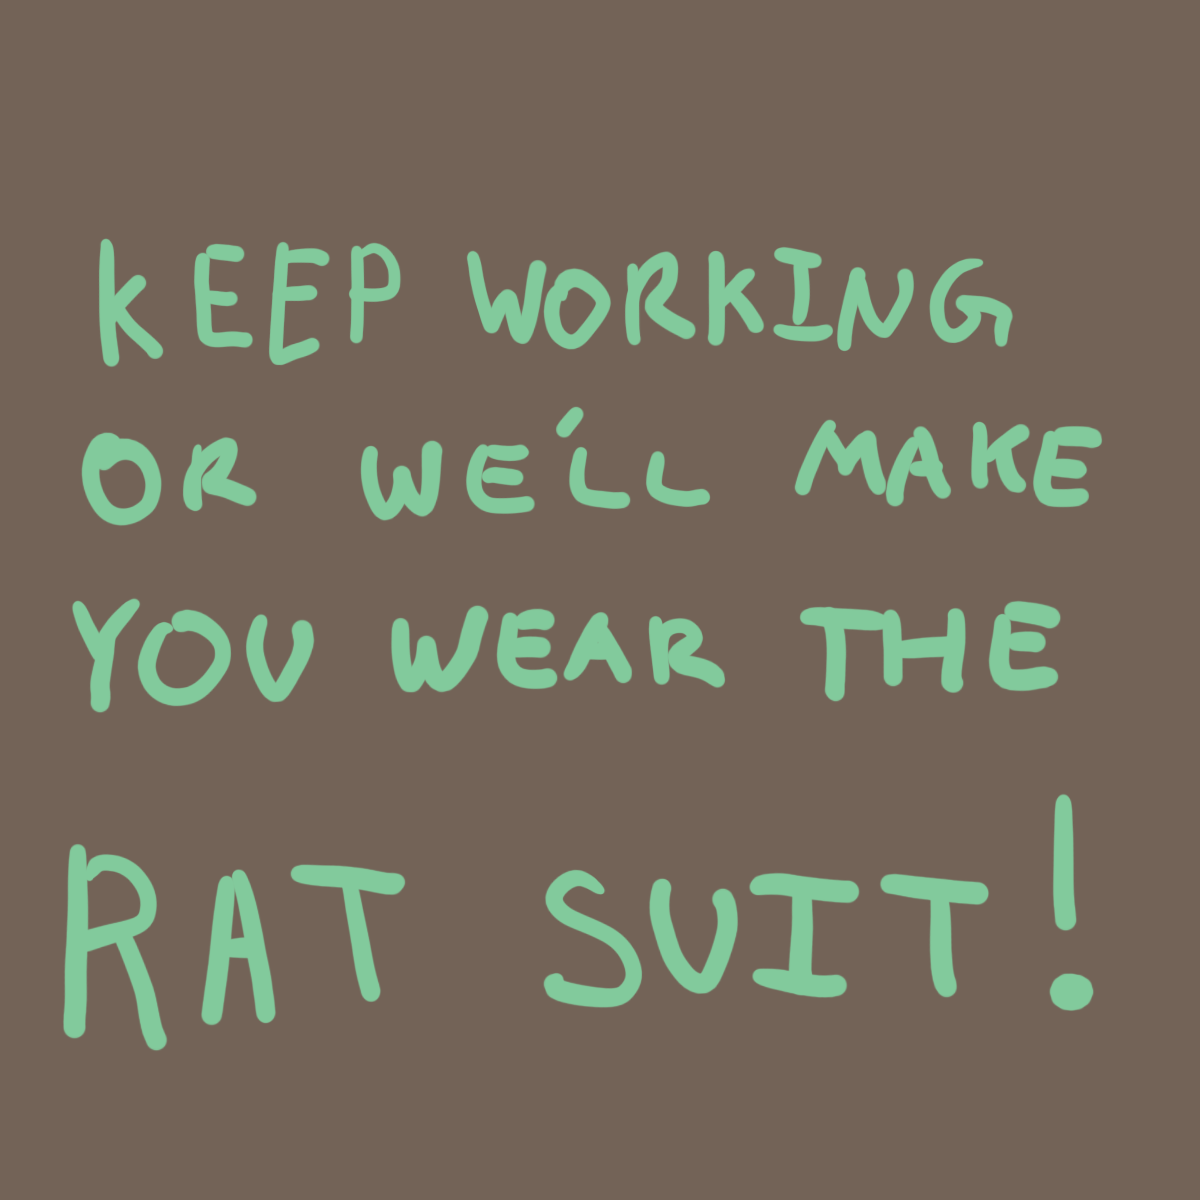 KEEP WORKING
OR WE'LL MAKE
YOU WEAR THE
RAT SUIT!